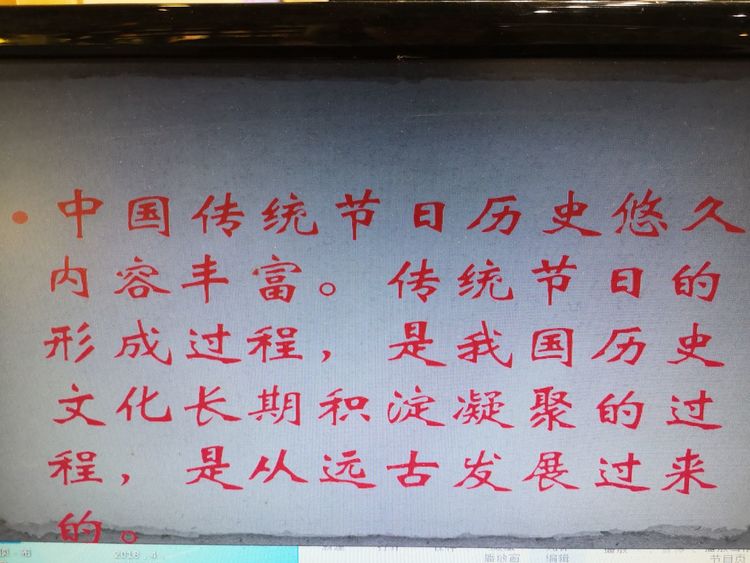 • 中国传统节日历史悠久
内容丰富。传统节日的
形成过程，是我国历史
文化长期积淀凝聚的过
程，是从远古发展过来
的。
2018 . 4